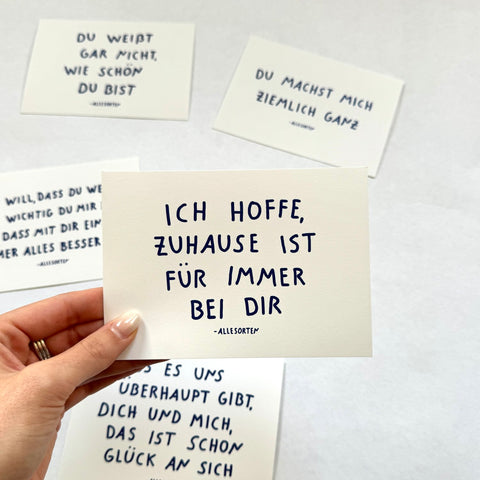 DU WEIẞT
GAR NICHT,
WIE SCHÖN
DU BIST
-ALLESORTEN
DU MACHST MICH
ZIEMLICH GANZ
-ALLESORTEN
WILL, DASS DU
WICHTIG DU MIR
DASS MIT DIR
ALLES BESSER
-ALLESORTEN
ICH HOFFE,
ZUHAUSE IST
FÜR IMMER
BEI DIR
-ALLESORTEN
ES UNS
ÜBERHAUPT GIBT,
DICH UND MICH,
DAS IST SCHON
GLÜCK AN SICH
-ALLESORTEN